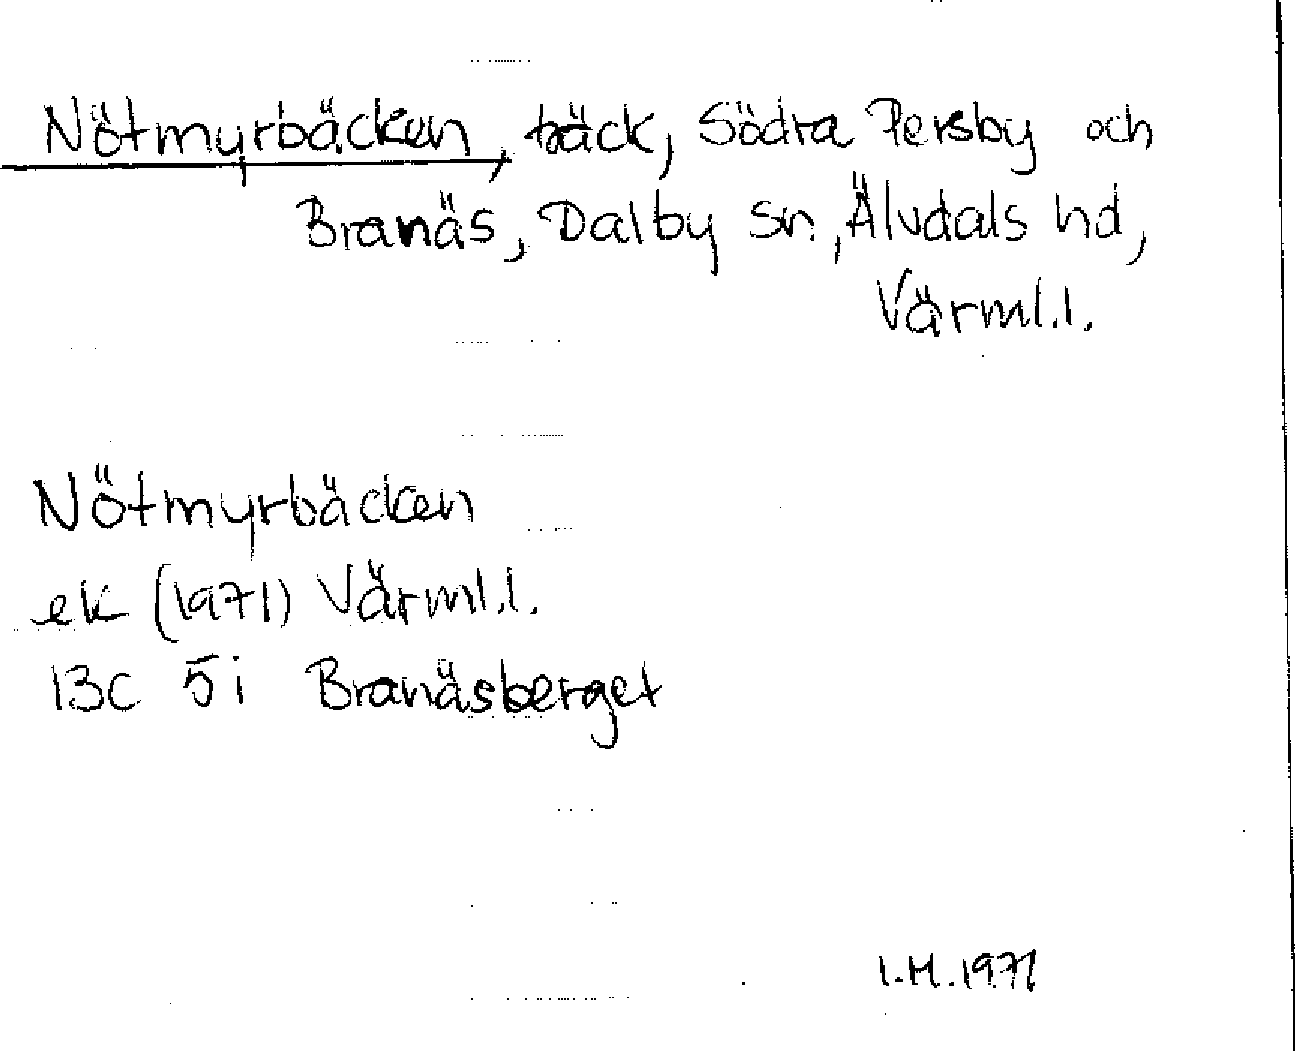 Nötmyrbäcken, bäck, Södra Persby och
Branäs, Dalby sn, Älvdals hd,
Värml.l.
Nötmyrbäcken
ek (1971) Värml.l.
13C 5i Branäsberget
I.M. 1971